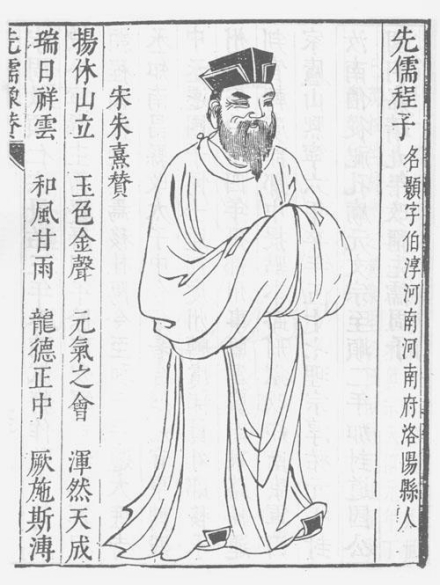 先儒程子 名顥字伯淳河南河南府洛陽縣人
宋朱熹贊
揚休山立 玉色金聲 元氣之會 渾然天成
瑞日祥雲 和風甘雨 龍德正中 厥施斯溥
先儒像贊